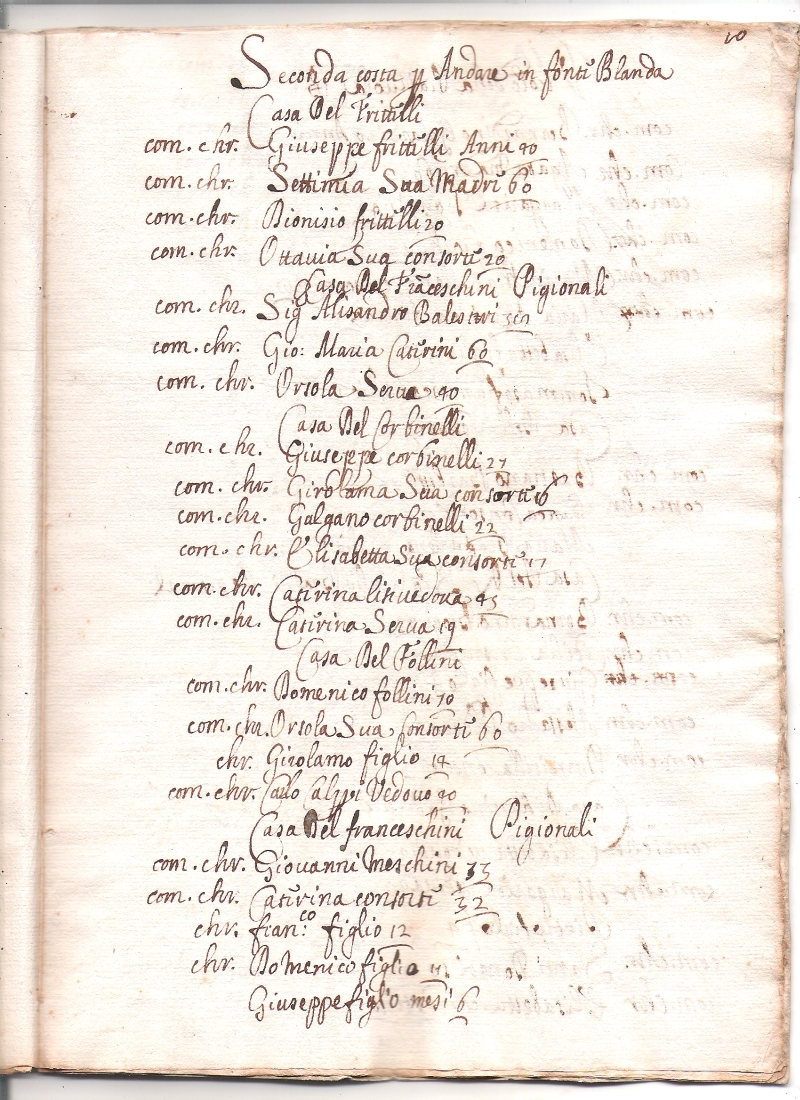 10
Seconda costa p Andare in fonti Blanda
Casa Del Frittilli
com. chr. Giuseppe frittilli Anni 40
com. chr. Settimia Sua Madri 60
com. chr. Dionisio frittilli 20
com. chr. Ottavia Sua consorti 20
Casa Del Franceschini Pigionali
com. chr. Sig Alisandro Balestri
com. chr. Gio: Maria Catirini 60
com. chr. Orsola Serva 40
Casa Del Corbinelli
com. chr. Giuseppe corbinelli 27
com. chr. Girolama Sua consorti 16
com. chr. Galgano corbinelli 22
com. chr. Elisabetta Sua consorti 17
com. chr. Catirina vedova 45
com. chr. Catirina Serva 19
Casa Del Follini
com. chr. Domenico follini 70
com. chr. Orsola Sua Consorti 60
chr. Girolamo figlio 14
com. chr. Carlo Vedovo 40
Casa Del franceschini Pigionali
com. chr. Giovanni Meschini 33
com. chr. Catirina consorti 32
chr. fran:co figlio 12
chr. Domenico figlio
Giuseppe figlio mesi 6